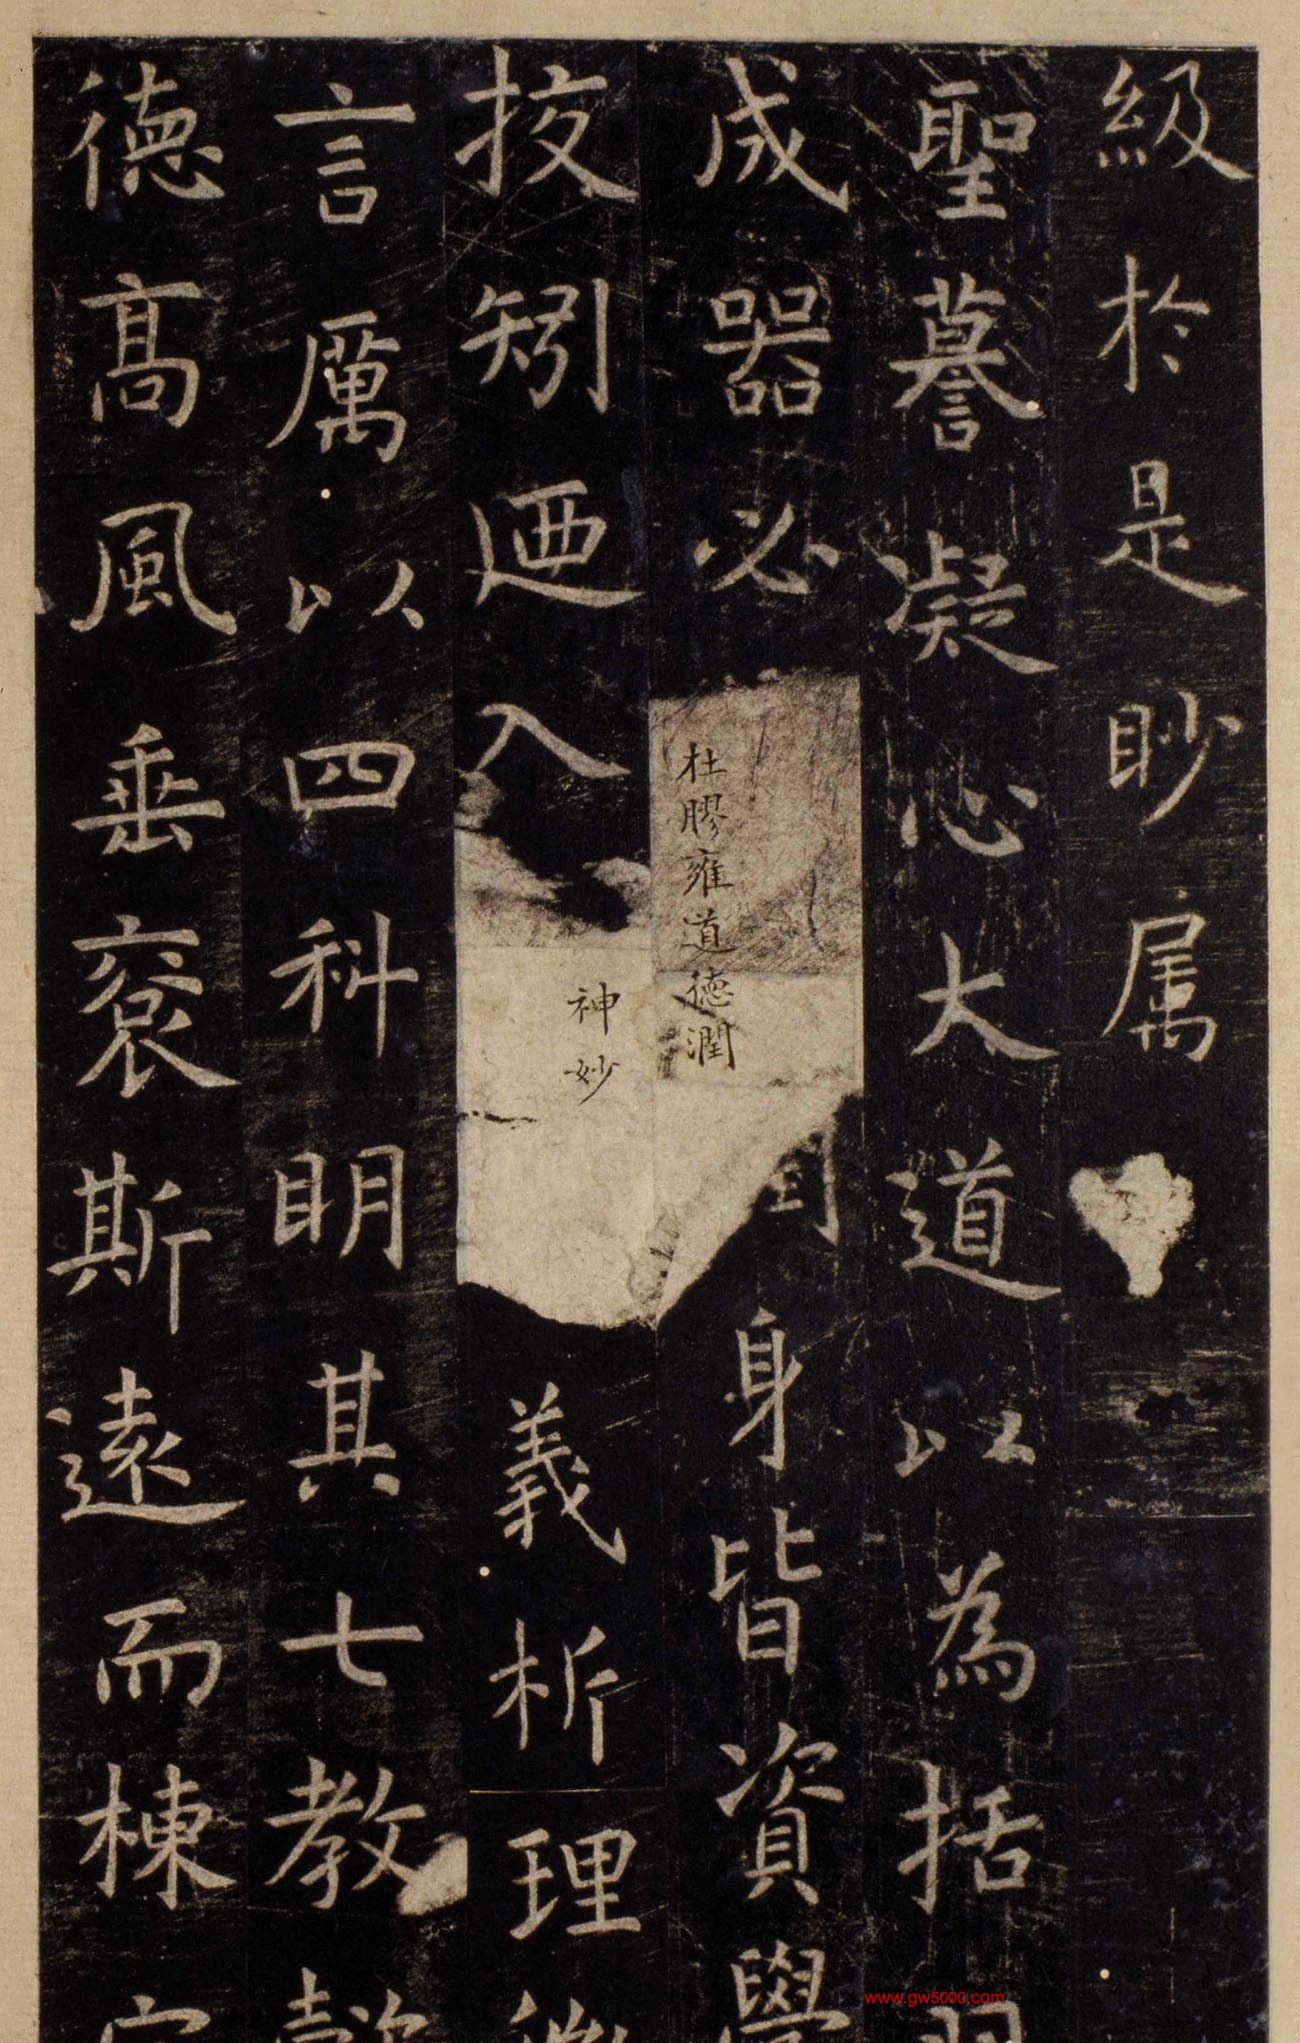 級於是眇属
聖謩凝心大道以為括羽
成器必
杜膠雍道德潤
身皆資學
技矧廼入
神妙
義析理
言厲以四科明其七教
德高風垂裦斯遠而棟
www.gw5000.com